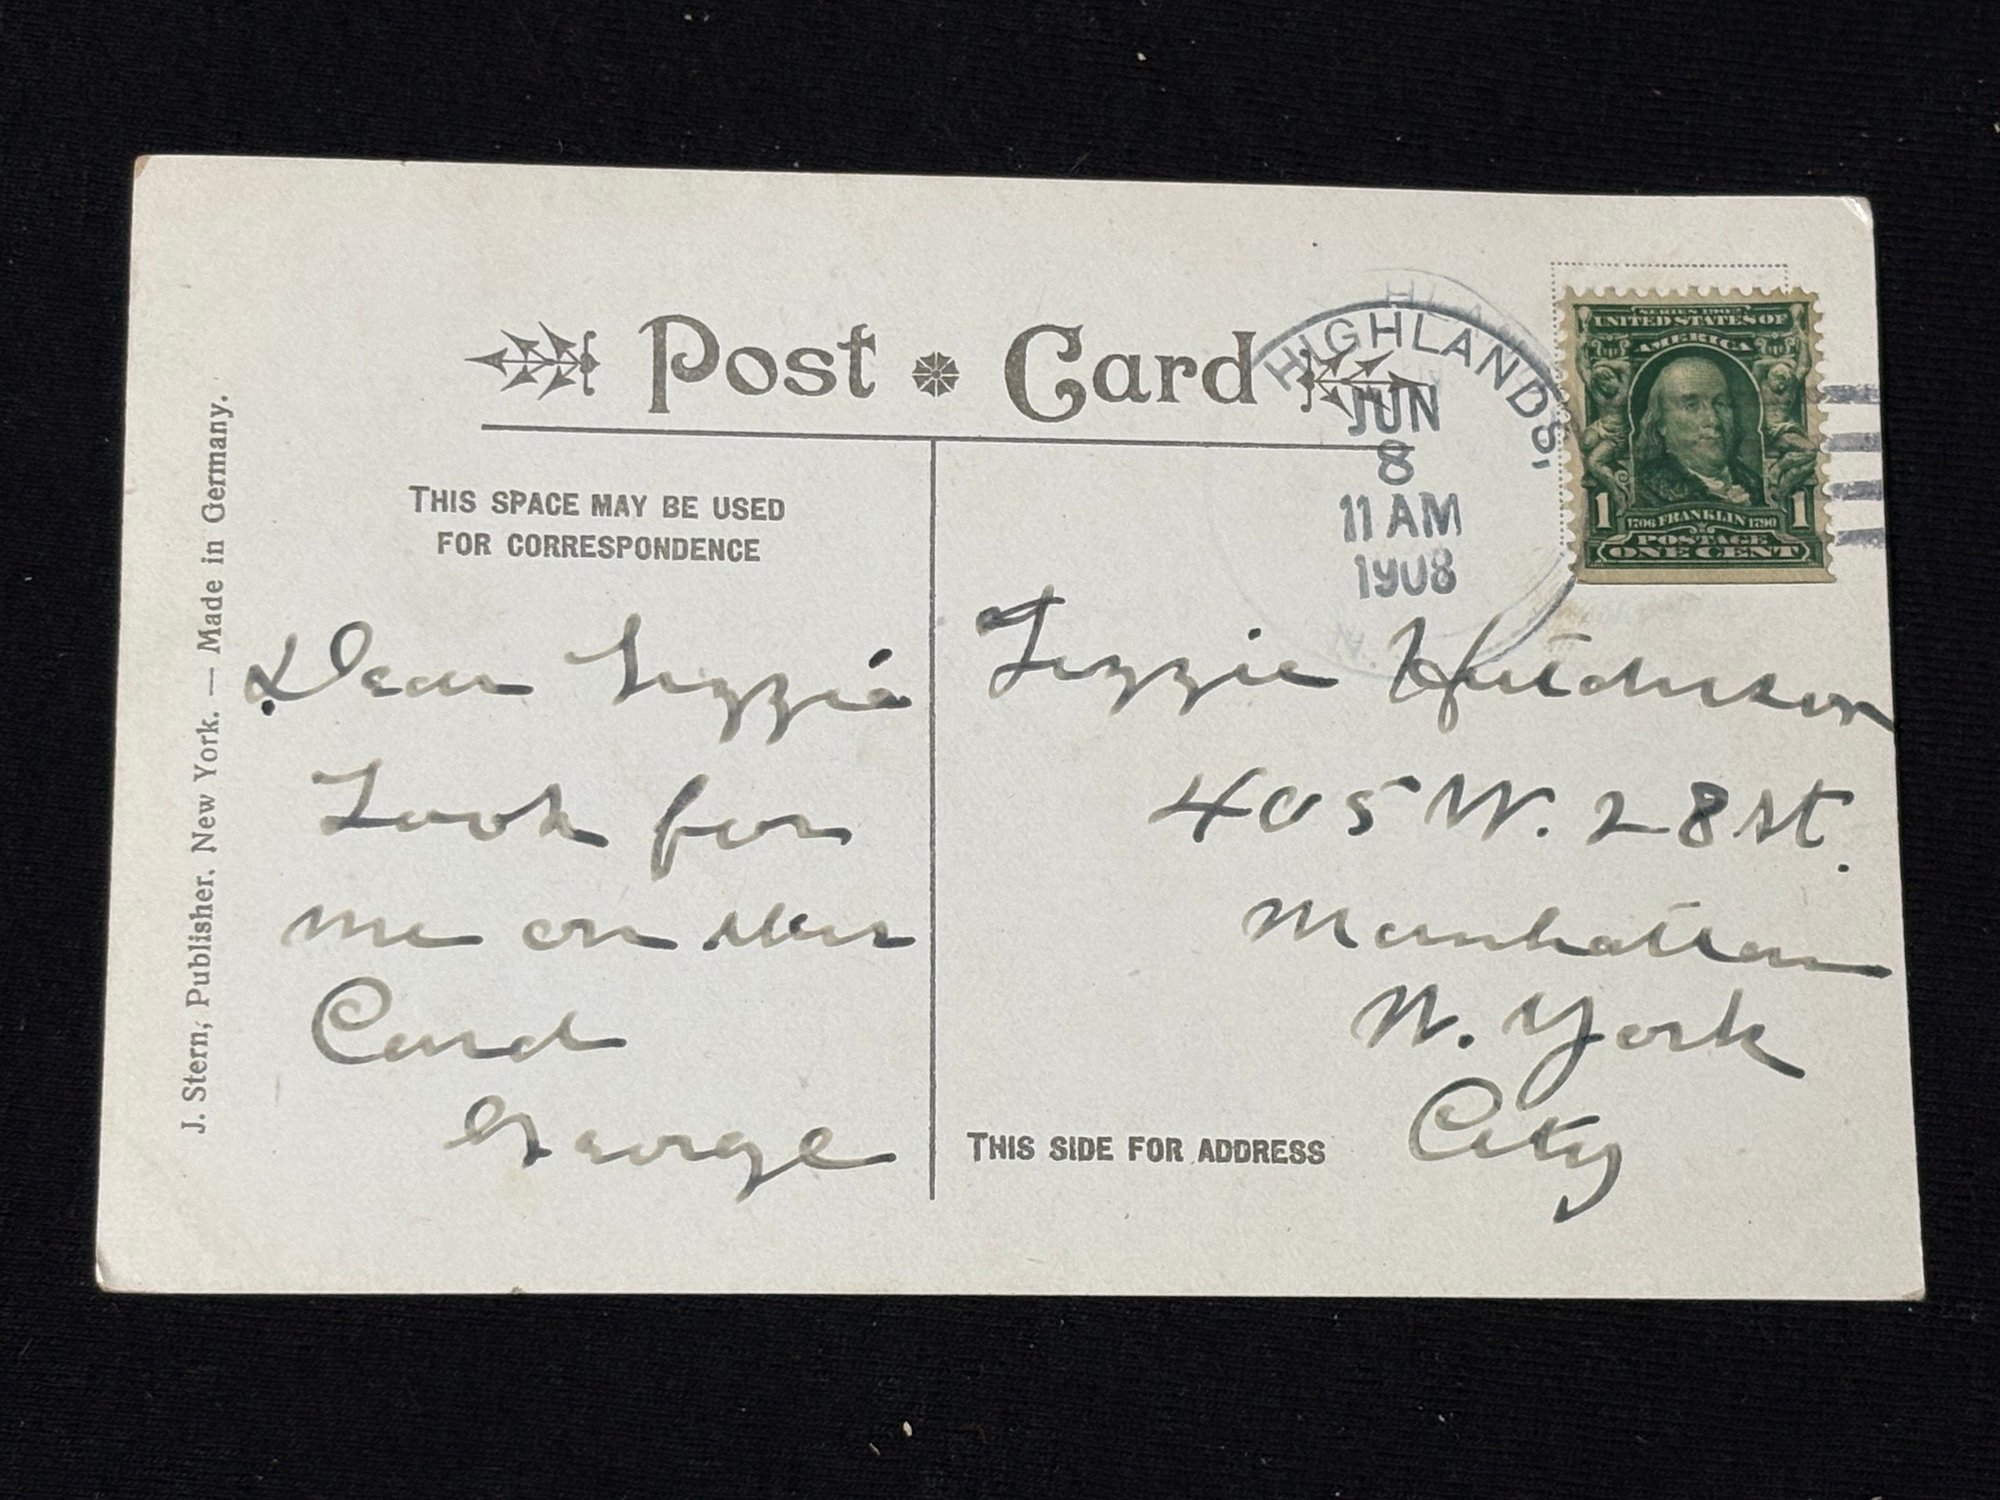 Post Card
THIS SPACE MAY BE USED
FOR CORRESPONDENCE
J. Stern, Publisher, New York. — Made in Germany.
Dear Lizzie
Look for
me on this
Card
George
HIGHLANDS,
JUN
8
11 AM
1908
SERIES 1902
UNITED STATES OF
AMERICA
1 1706 FRANKLIN 1790 1
POSTAGE
ONE CENT
Lizzie Hutchison
405 W. 28 St.
Manhattan
N. York
City
THIS SIDE FOR ADDRESS